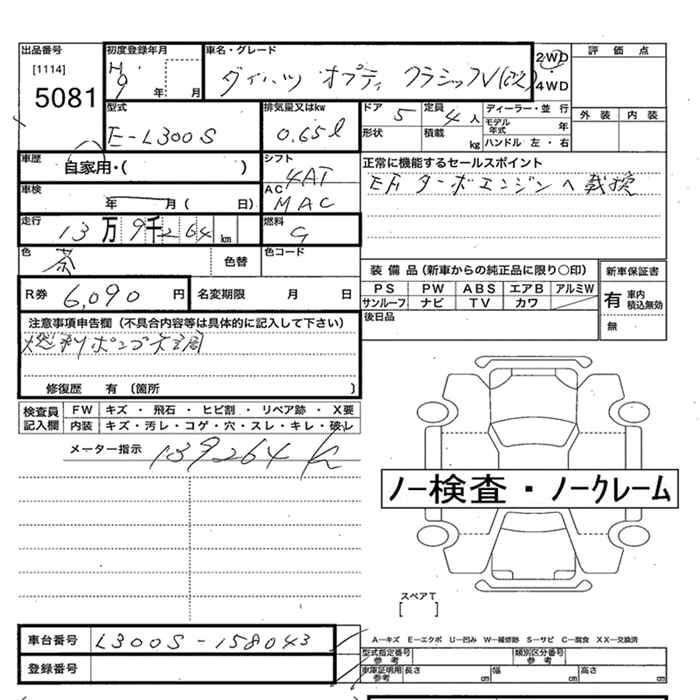 出品番号 初度登録年月 車名・グレード 評価点
[1114] 5081 H9年 月 ダイハツ オプティ クラシックV(改) 2WD 4WD
外装 内装
型式 排気量又はkw ドア 5 定員 4人 ディーラー・並行
E-L300S 0.65ℓ 形状 積載 kg モデル年式 年
ハンドル 左・右
車歴 自家用・( ) シフト 4AT 正常に機能するセールスポイント
車検 年 月( 日) AC MAC EFiターボエンジンへ載換
走行 13万9千264km 燃料 G
色 茶 色替 色コード
装備品(新車からの純正品に限り○印) 新車保証書
R券 6,090円 名変期限 月 日 PS PW ABS エアB アルミW 有 車内積込無効
サンルーフ ナビ TV カワ 無
注意事項申告欄(不具合内容等は具体的に記入して下さい) 後日品
燃料ポンプ
修復歴 有 (箇所 )
検査員記入欄 FW キズ・飛石・ヒビ割・リペア跡・X要
内装 キズ・汚レ・コゲ・穴・スレ・キレ・破レ
メーター指示 139264 K
ノー検査・ノークレーム
スペアT
[ ]
車台番号 L300S-158043 A―キズ E―エクボ U―凹み W―補修跡 S―サビ C―腐食 XX―交換済
型式指定番号 参考 類別区分番号 参考
登録番号 車庫証明用 参考 長さ cm 幅 cm 高さ cm